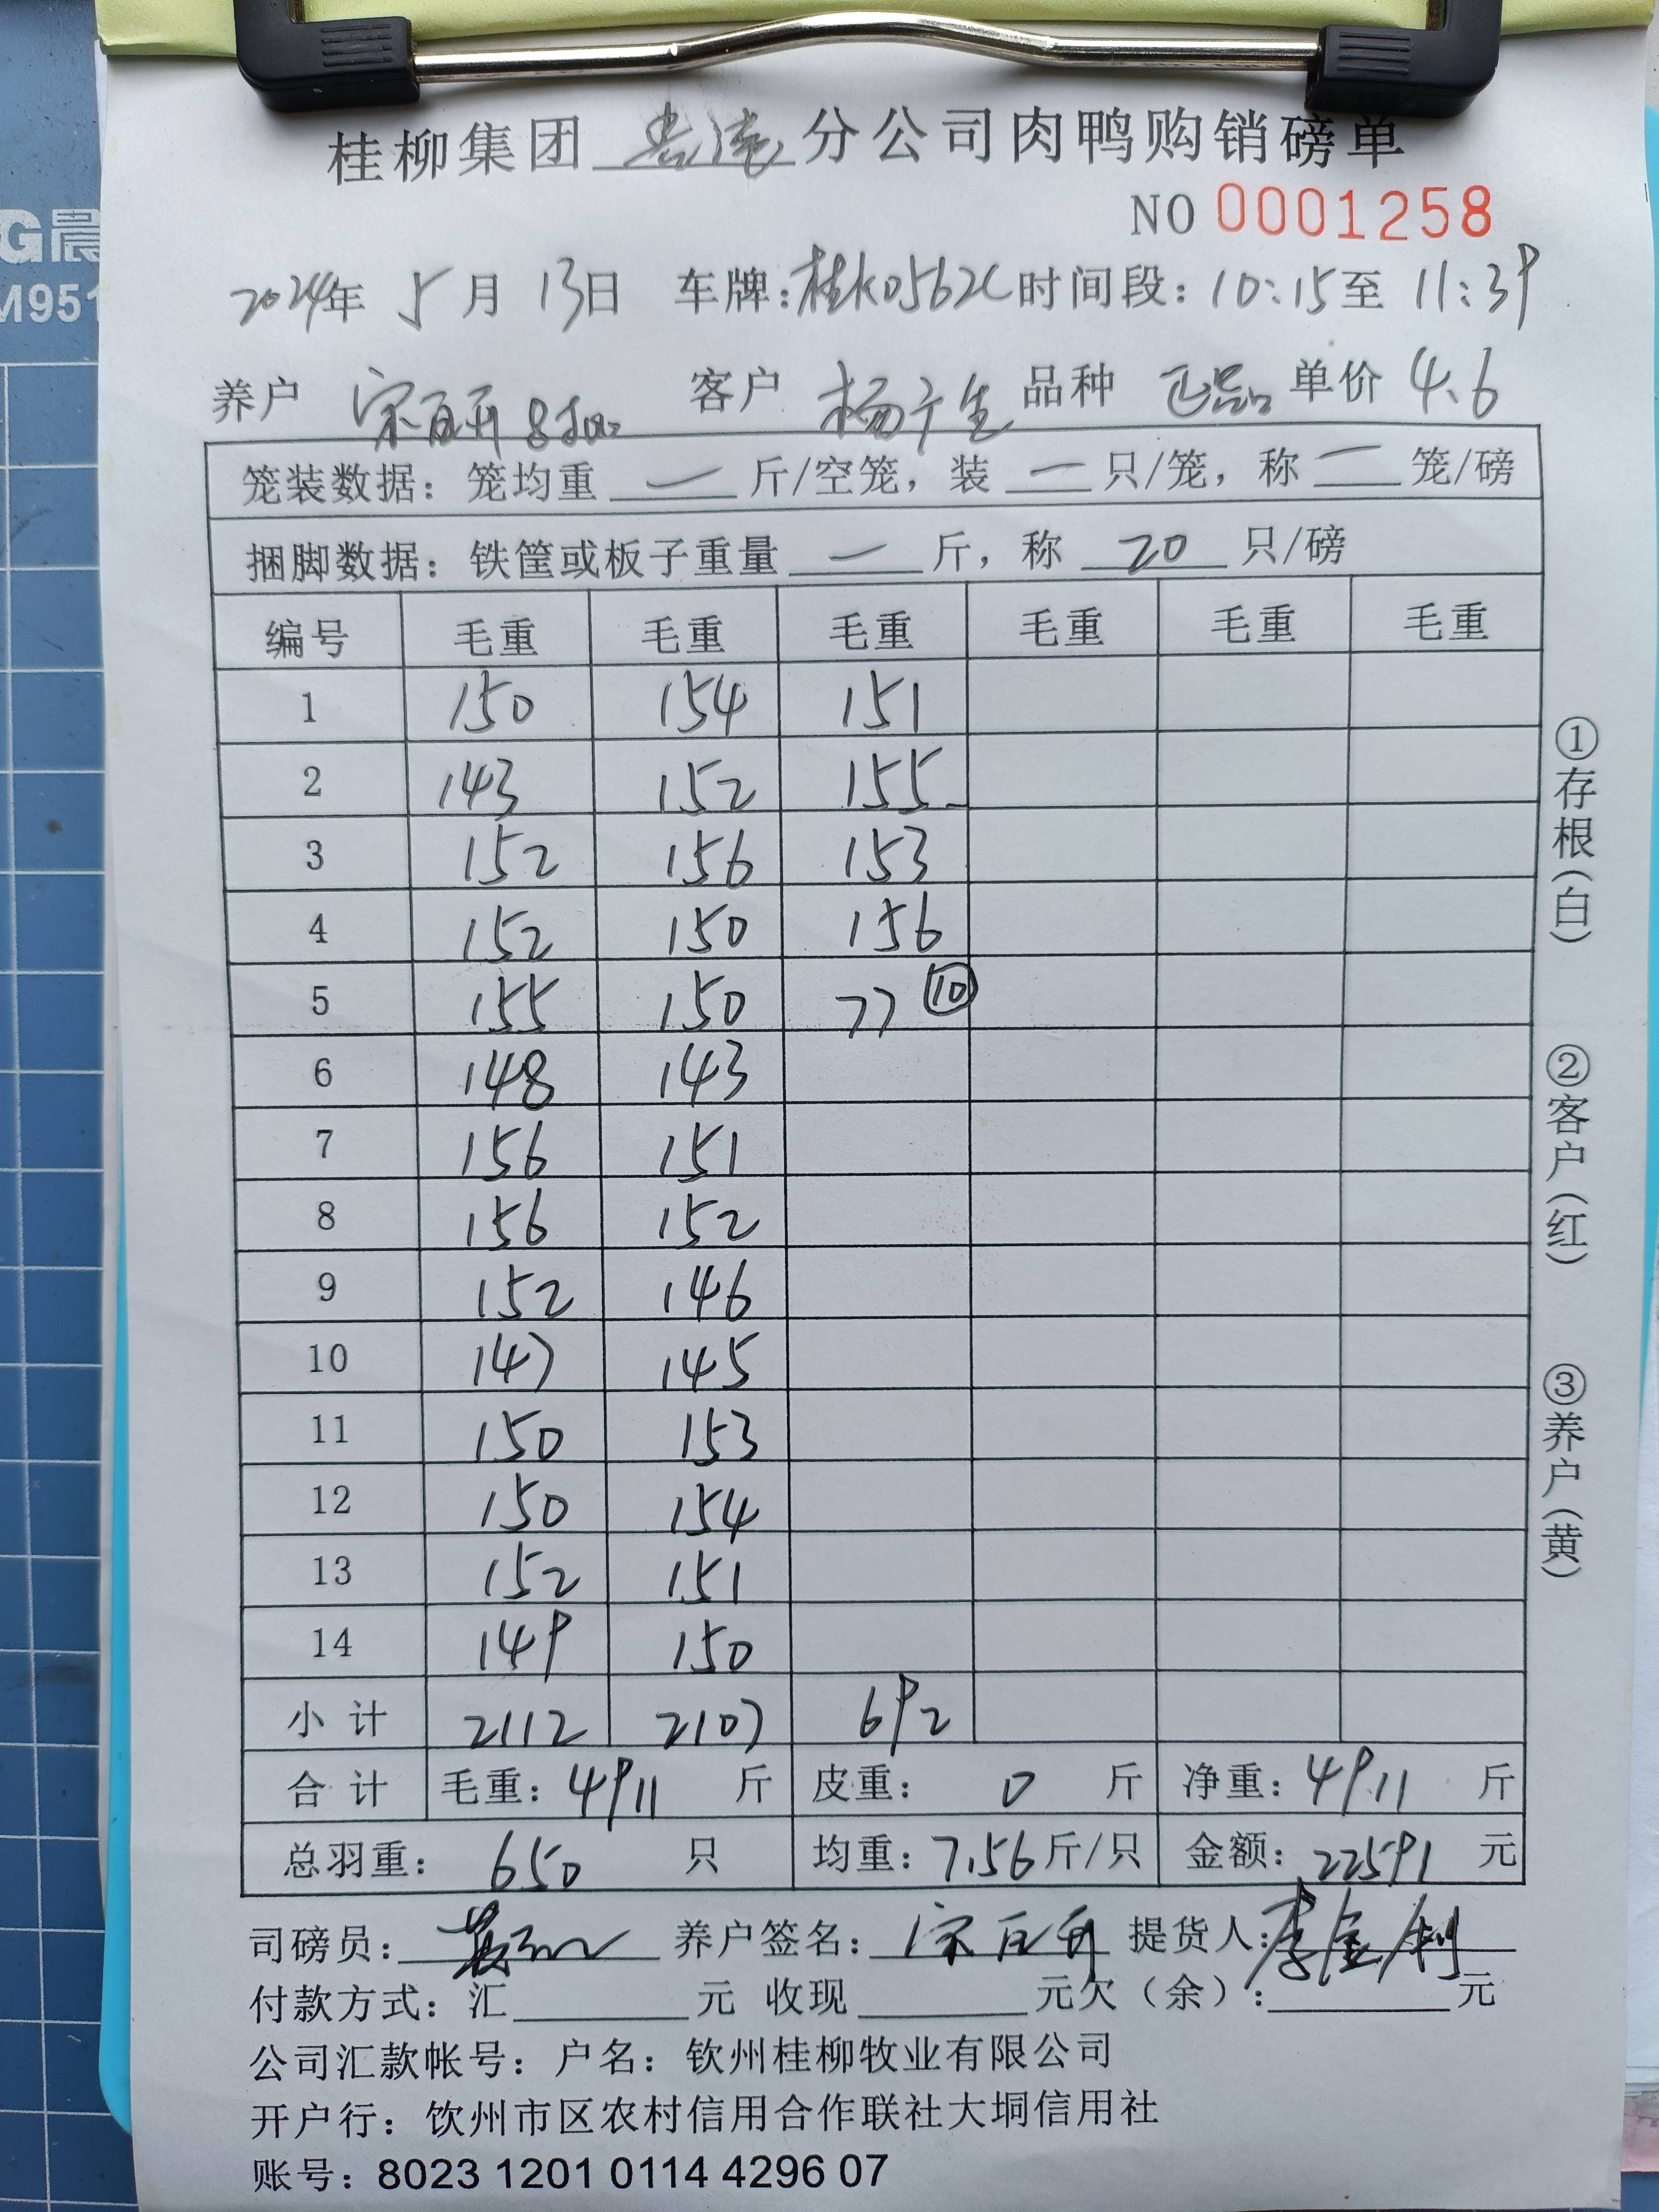 桂柳集团 分公司肉鸭购销磅单
NO 0001258
G晨
M951
2024年 5月 13日 车牌:桂K0562C 时间段: 10:15至 11:39
养户 宋百开 客户 杨广生 品种 正品 单价 4.6
笼装数据: 笼均重 一 斤/空笼, 装 一 只/笼, 称 一 笼/磅
捆脚数据: 铁筐或板子重量 一 斤, 称 20 只/磅
编号 毛重 毛重 毛重 毛重 毛重 毛重
1 150 154 151
2 143 152 155
3 152 156 153
4 152 150 156
5 155 150 77 ⑩
6 148 143
7 156 151
8 156 152
9 152 146
10 147 145
11 150 153
12 150 154
13 152 151
14 149 150
小计 2112 2107 692
合计 毛重: 4911 斤 皮重: 0 斤 净重: 4911 斤
总羽重: 650 只 均重: 7.56 斤/只 金额: 22591 元
①存根(白)
②客户(红)
③养户(黄)
司磅员: 养户签名: 宋百开 提货人: 李金利
付款方式: 汇 元 收现 元欠(余): 元
公司汇款帐号: 户名: 钦州桂柳牧业有限公司
开户行: 钦州市区农村信用合作联社大垌信用社
账号: 8023 1201 0114 4296 07